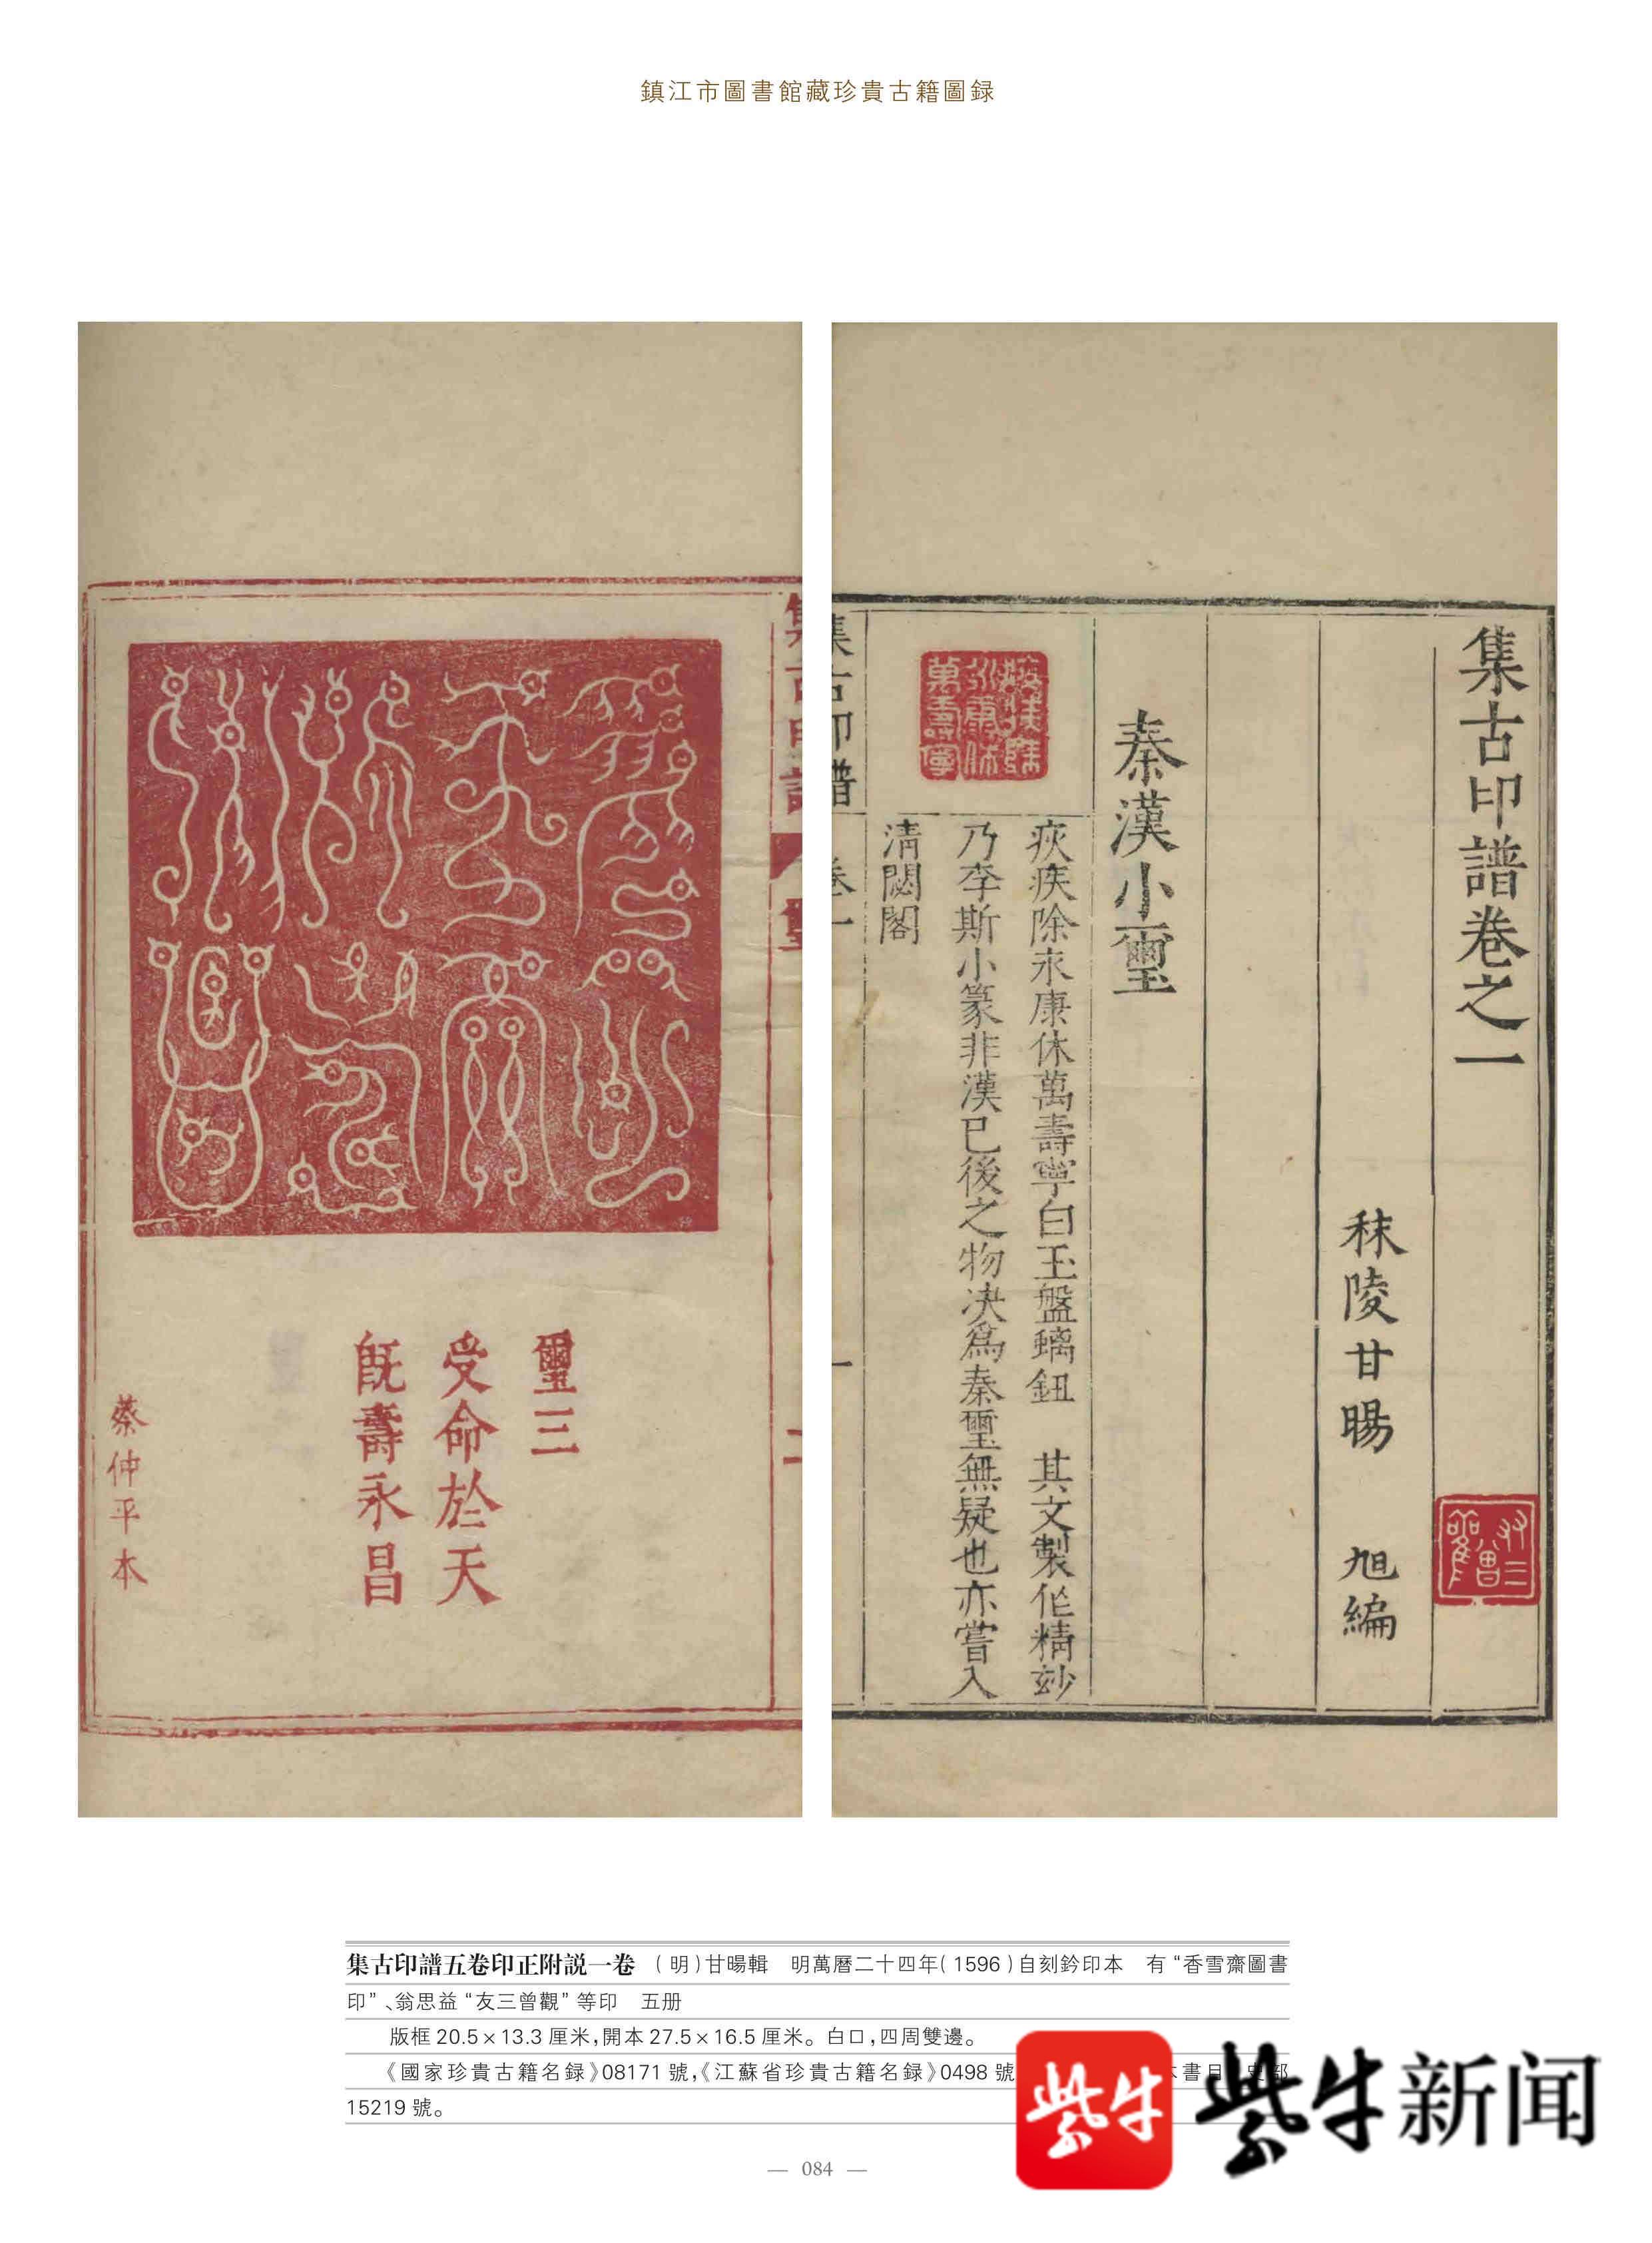 鎮江市圖書館藏珍貴古籍圖録
集古印譜卷之一
秣陵甘暘 旭編
秦漢小璽
疢疾除永康休萬壽寧白玉盤螭鈕 其文製作精玅
乃李斯小篆非漢已後之物决爲秦璽無疑也亦嘗入
清閟閣
集古印譜 卷一
一
集古印譜 璽
璽三
受命於天
旣壽永昌
蔡仲平本
集古印譜五卷印正附説一卷 （明）甘暘輯 明萬曆二十四年（1596）自刻鈐印本 有“香雪齋圖書
印”、翁思益“友三曾觀”等印 五册
版框 20.5×13.3 厘米，開本 27.5×16.5 厘米。白口，四周雙邊。
《國家珍貴古籍名録》08171 號，《江蘇省珍貴古籍名録》0498 號 書目 史部
15219 號。
— 084 —
紫牛
紫牛新闻